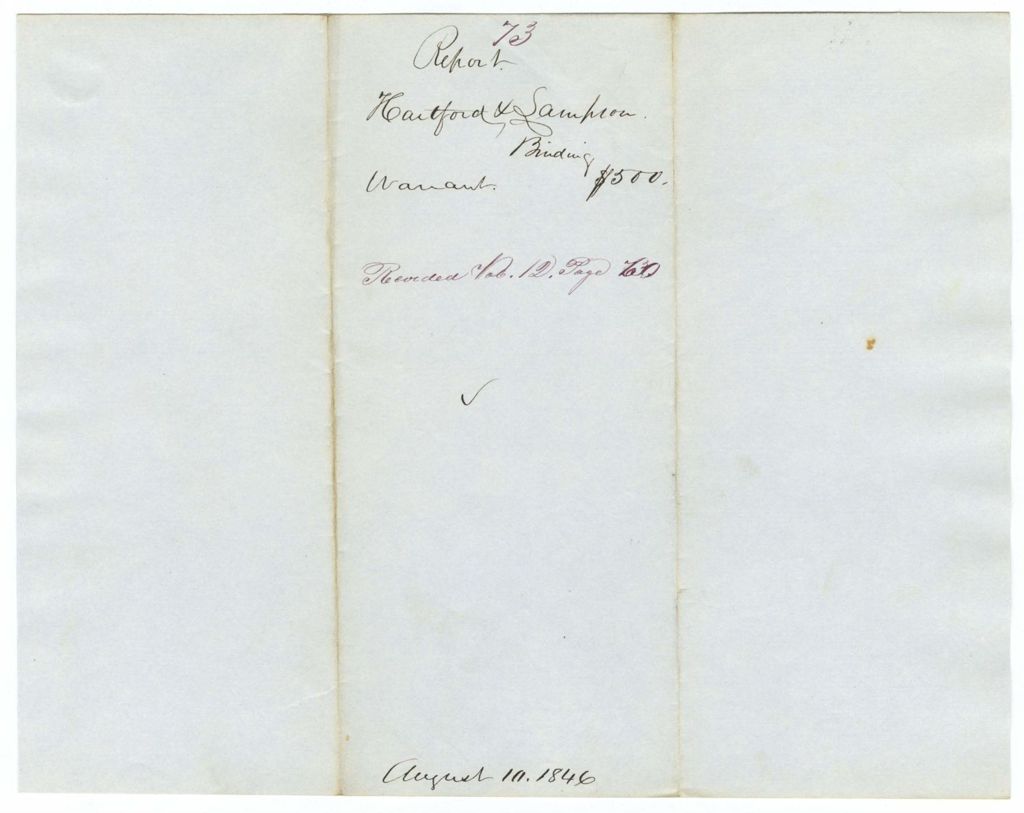 73
Report.
Hartford & Sampson.
Binding
Warrant. $500.
Recorded Vol. 12. Page
August 10. 1846